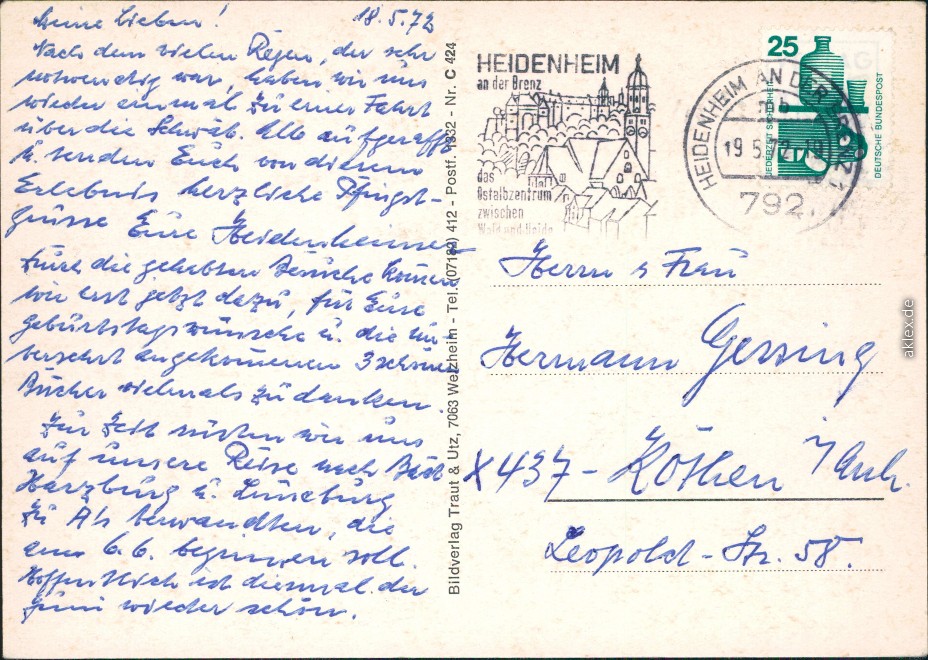 Meine Lieben! 18.5.72
Nach dem vielen Regen, der sehr
notwendig war, haben wir uns
wieder einmal zu einer Fahrt
über die Schwäb. Alb aufgerafft
u. senden Euch von diesem
Erlebnis herzliche Pfingst-
grüsse Eure Heidenheimer
Durch die gehabten Besuche kommen
wir erst jetzt dazu, für Eure
Geburtstagswünsche u. die un-
versehrt angekommenen 3 schönen
Bücher vielmals zu danken.
Zur Zeit rüsten wir uns
auf unsere Reise nach Bad
Harzburg u. Lüneburg
zu A's Verwandten, die
am 6.6. beginnen soll.
Hoffentlich ist diesmal der
Juni wieder schön.
Bildverlag Traut & Utz, 7063 Welzheim - Tel. (07182) 412 - Postf. 1332 - Nr. C 424
HEIDENHEIM
an der Brenz
das
Ostalbzentrum
zwischen
Wald und Heide
HEIDENHEIM AN DER BRENZ 1
mb
19.5.72
792
25
JEDERZEIT SICHERHEIT
DEUTSCHE BUNDESPOST
Herrn u Frau
Hermann Gessing
X437 - Köthen i/Anh.
Leopold - Str. 58.
aklex.de